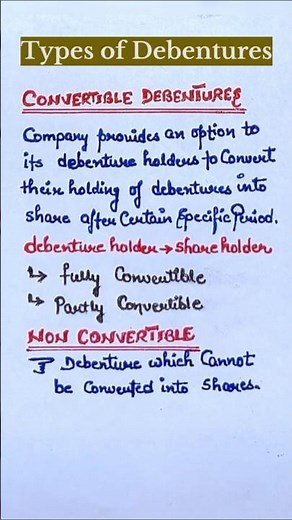 Types of Debentures
CONVERTIBLE DEBENTURES
Company provides an option to
its debenture holders to Convert
their holding of debentures into
share after Certain Specific Period.
debenture holder → share holder
↳ Fully Convertible
↳ Partly Convertible
NON CONVERTIBLE
Debenture which Cannot
be Converted into Shares.